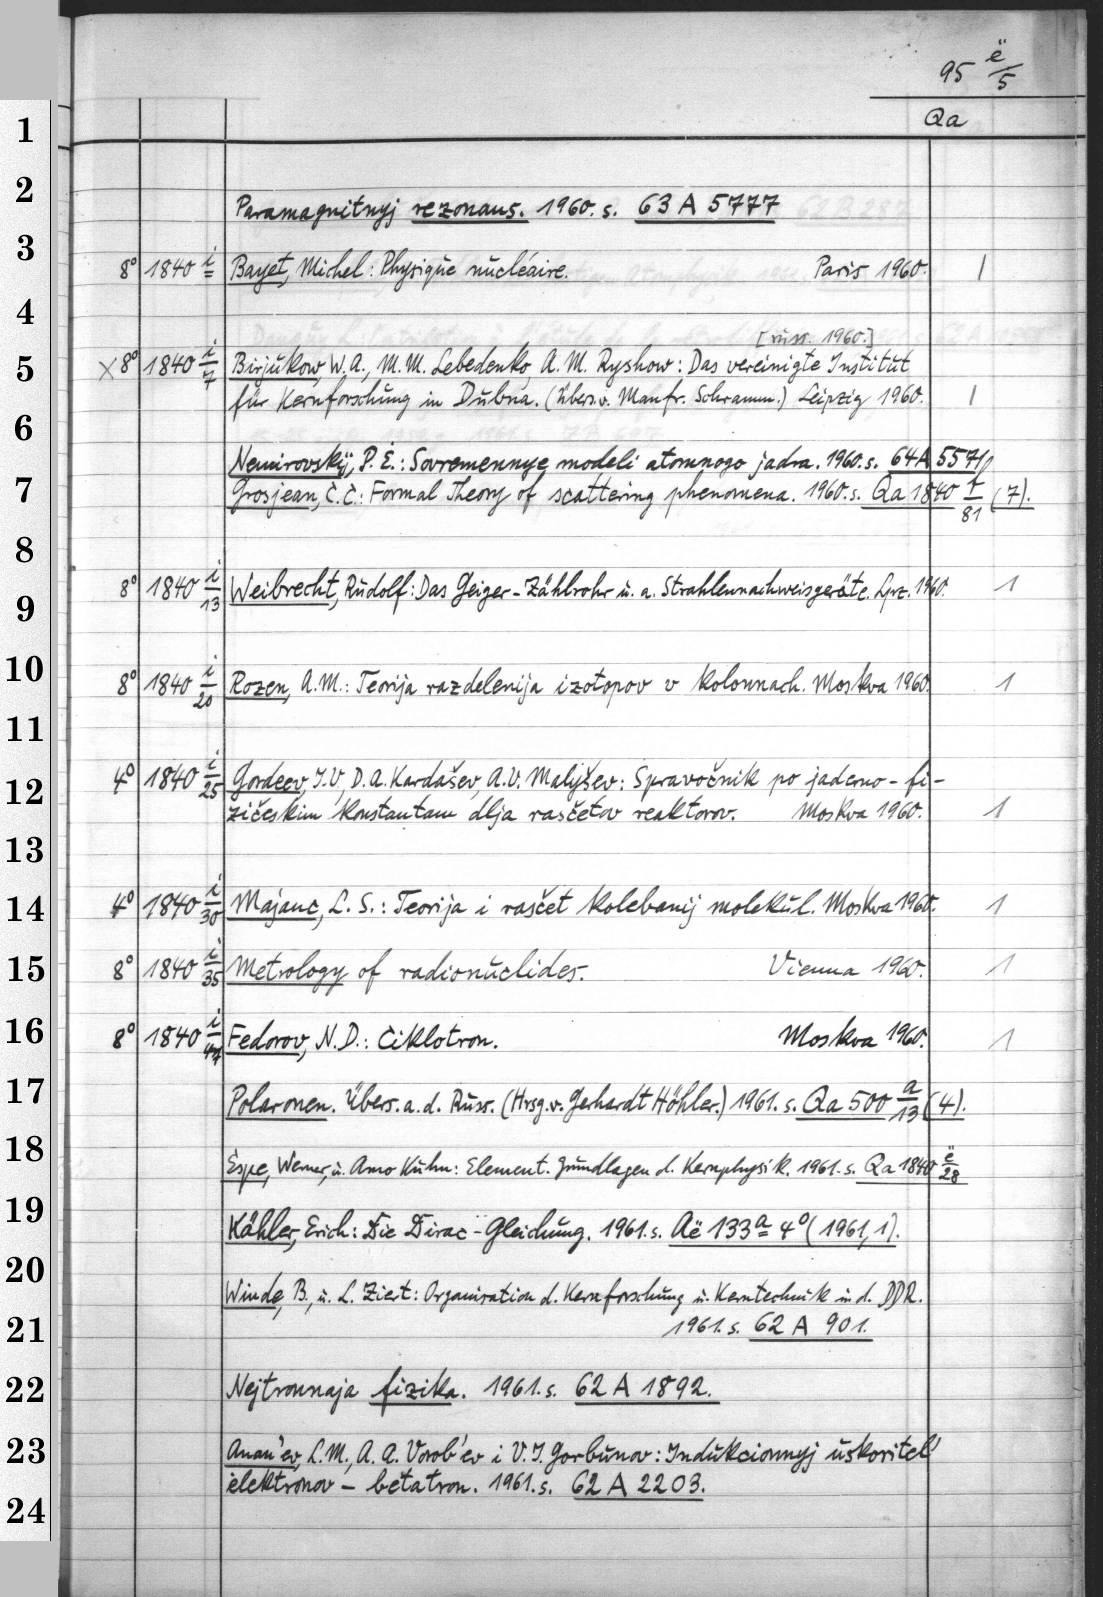 95 ë/5
1
Qa
2
Paramagnitnyj rezonans. 1960. s. 63 A 5777
3
8° 1840 i Bayet, Michel: Physique nucléaire. Paris 1960. 1
4
[russ. 1960.]
5
x 8° 1840 i/7 Birjukow, W.A., M.M. Lebedenko, A.M. Ryshow: Das vereinigte Institut
für Kernforschung in Dubna. (Übers.v. Manfr. Schramm.) Leipzig 1960. 1
6
Nemirovskij, P. Ė.: Sovremennye modeli atomnogo jadra. 1960. s. 64 A 5571
7
Grosjean, C.C.: Formal Theory of scattering phenomena. 1960. s. Qa 1840 f/81 (7).
8
8° 1840 i/13 Weibrecht, Rudolf: Das Geiger-Zählrohr u. a. Strahlennachweisgeräte. Lpz. 1960. 1
9
10
8° 1840 i/20 Rozen, A.M.: Teorija razdelenija izotopov v kolonnach. Moskva 1960. 1
11
4° 1840 i/25 Gordeev, I.V., D.A. Kardašev, A.V. Malyšev: Spravočnik po jaderno-fi-
12
zičeskim konstantam dlja rasčetov reaktorov. Moskva 1960. 1
13
14
4° 1840 i/30 Majanc, L. S.: Teorija i rasčet kolebanij molekul. Moskva 1960. 1
15
8° 1840 i/35 Metrology of radionuclides. Vienna 1960. 1
16
8° 1840 i/47 Fedorov, N.D.: Ciklotron. Moskva 1960. 1
17
Polaronen. Übers. a. d. Russ. (Hrsg. v. Gerhardt Höhler.) 1961. s. Qa 500 a/13 (4).
18
Espe, Werner, u. Arno Kuhn: Element. Grundlagen d. Kernphysik. 1961. s. Qa 1840 ë/28
19
Kähler, Erich: Die Dirac-Gleichung. 1961. s. Aë 133 a 4° (1961,1).
20
Winde, B., u. L. Ziert: Organisation d. Kernforschung u. Kerntechnik in d. DDR.
21
1961. s. 62 A 901.
22
Nejtronnaja fizika. 1961. s. 62 A 1892.
23
Anan'ev, L.M., A. A. Vorob'ev i V. I. Gorbunov: Indukcionnyj uskoritel'
ėlektronov – betatron. 1961. s. 62 A 2203.
24